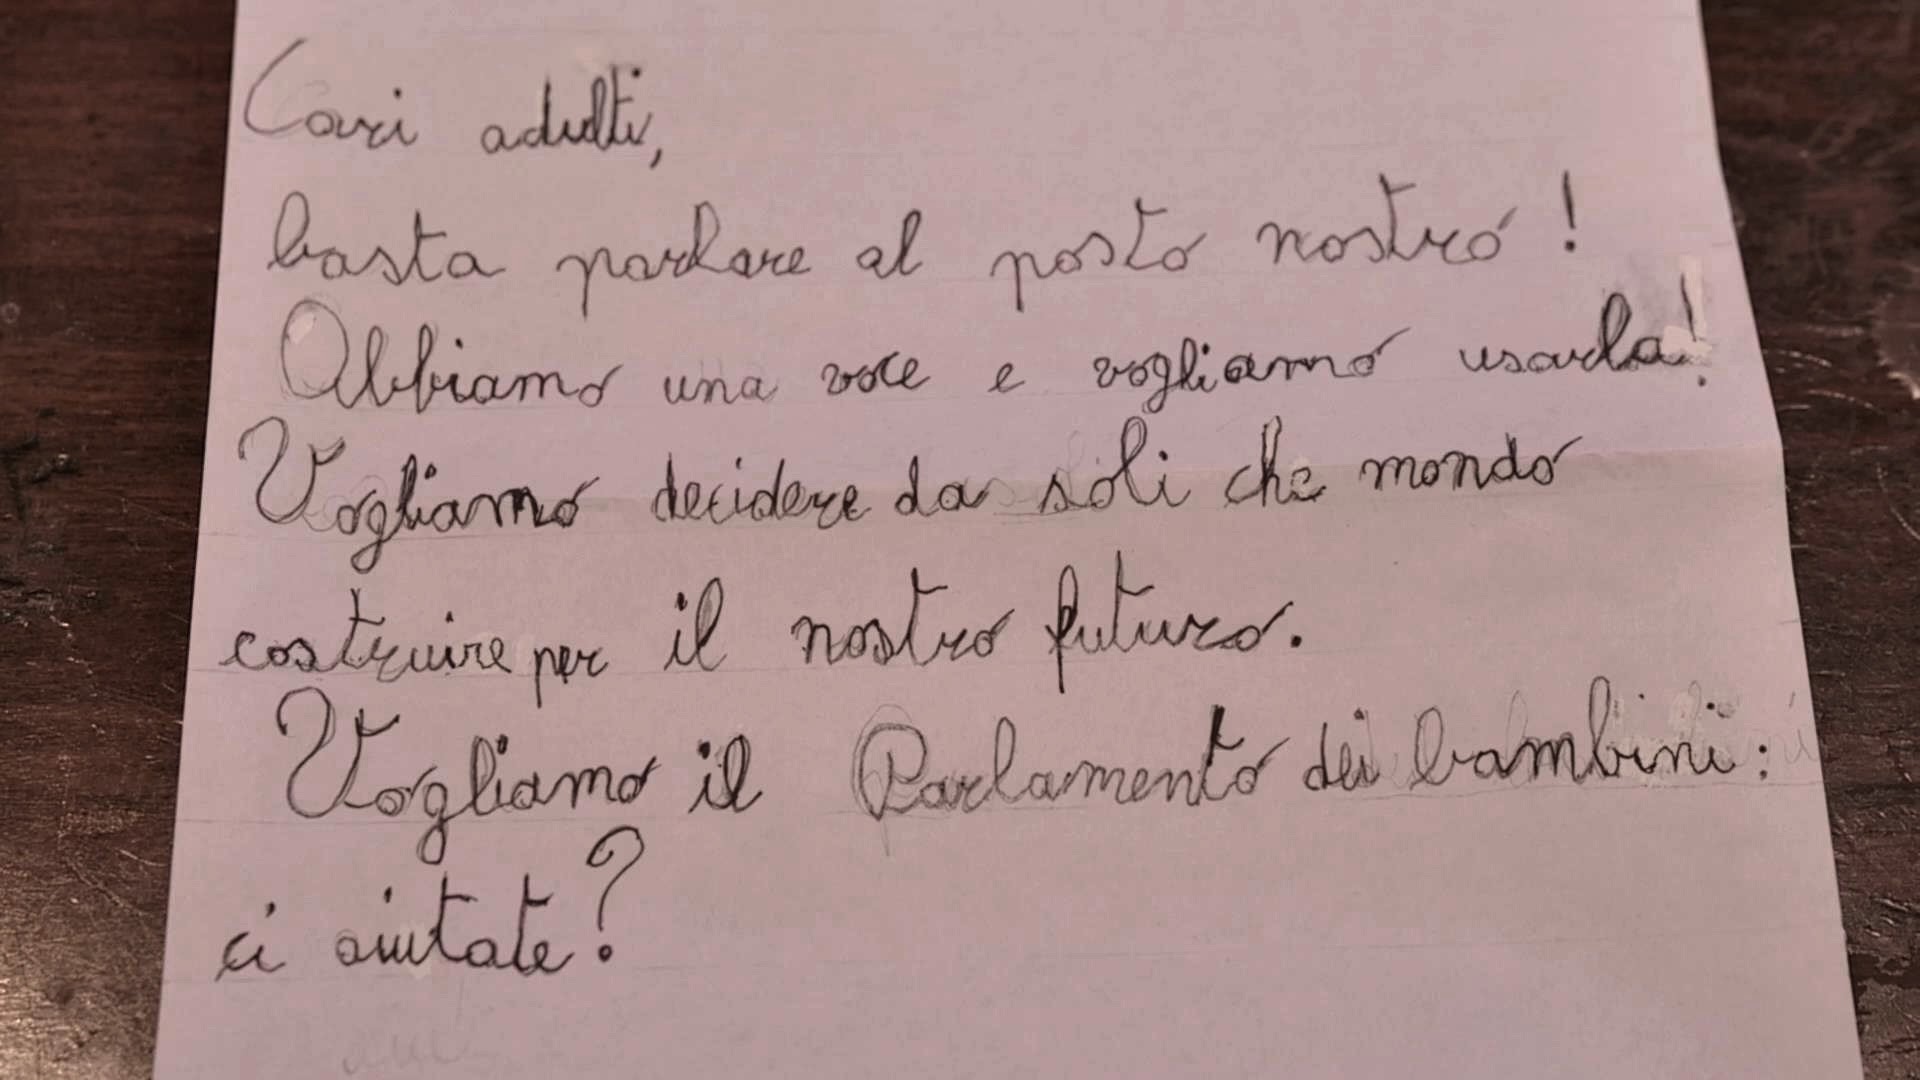 Cari adulti,
basta parlare al posto nostro!
Abbiamo una voce e vogliamo usarla!
Vogliamo decidere da soli che mondo
costruire per il nostro futuro.
Vogliamo il Parlamento dei bambini:
ci aiutate?